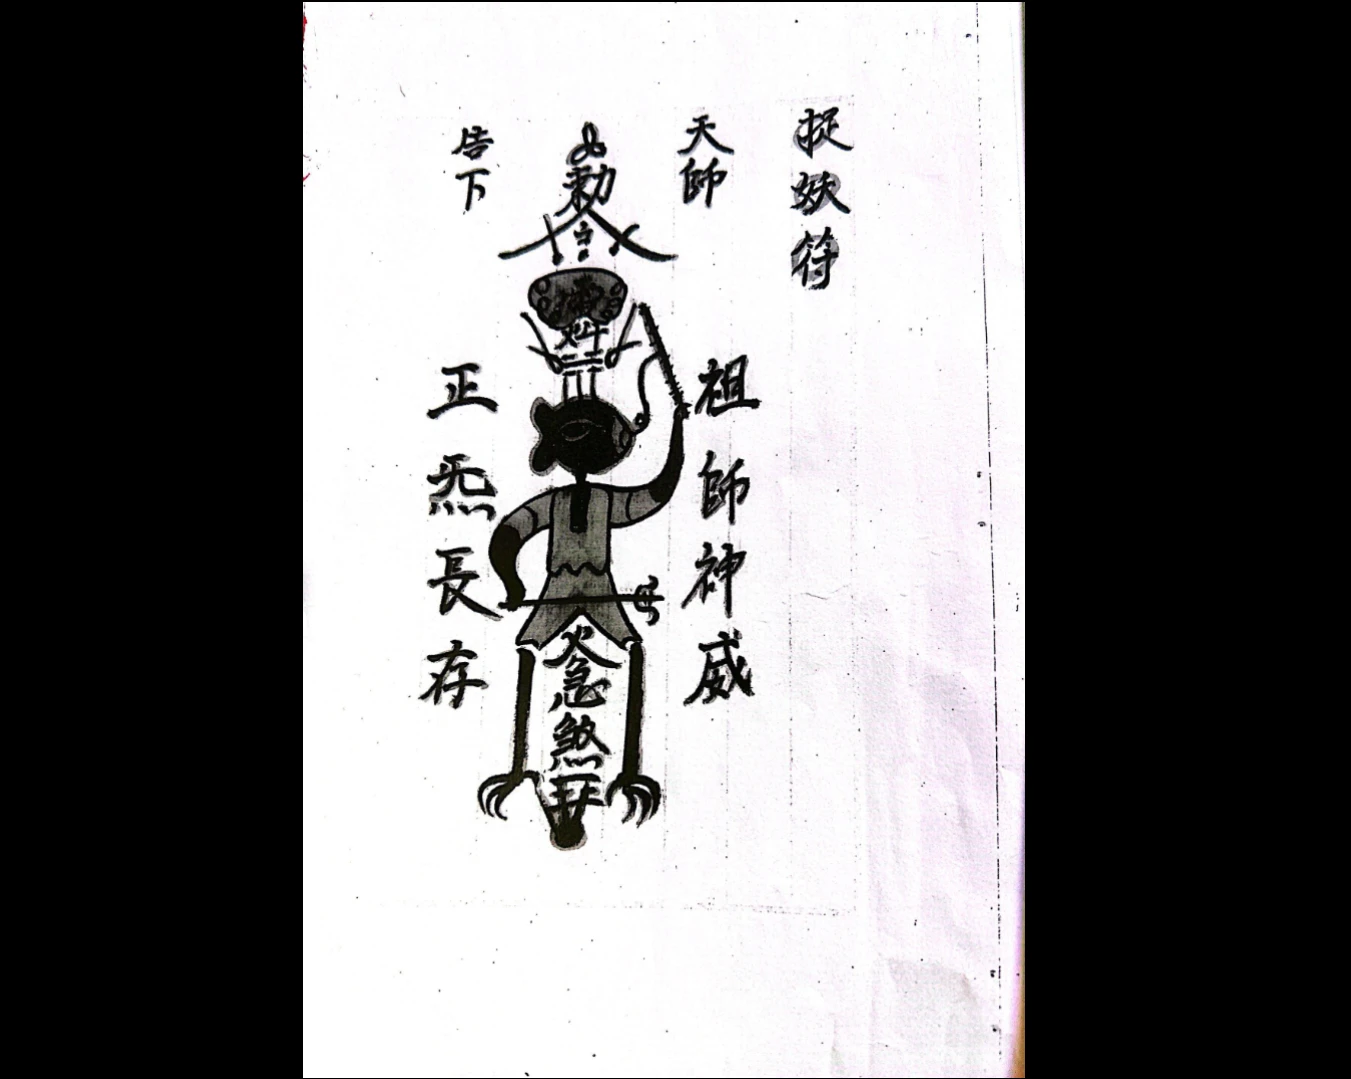 捉妖符
天師
祖師神威
勅令
急煞
告下
正炁長存